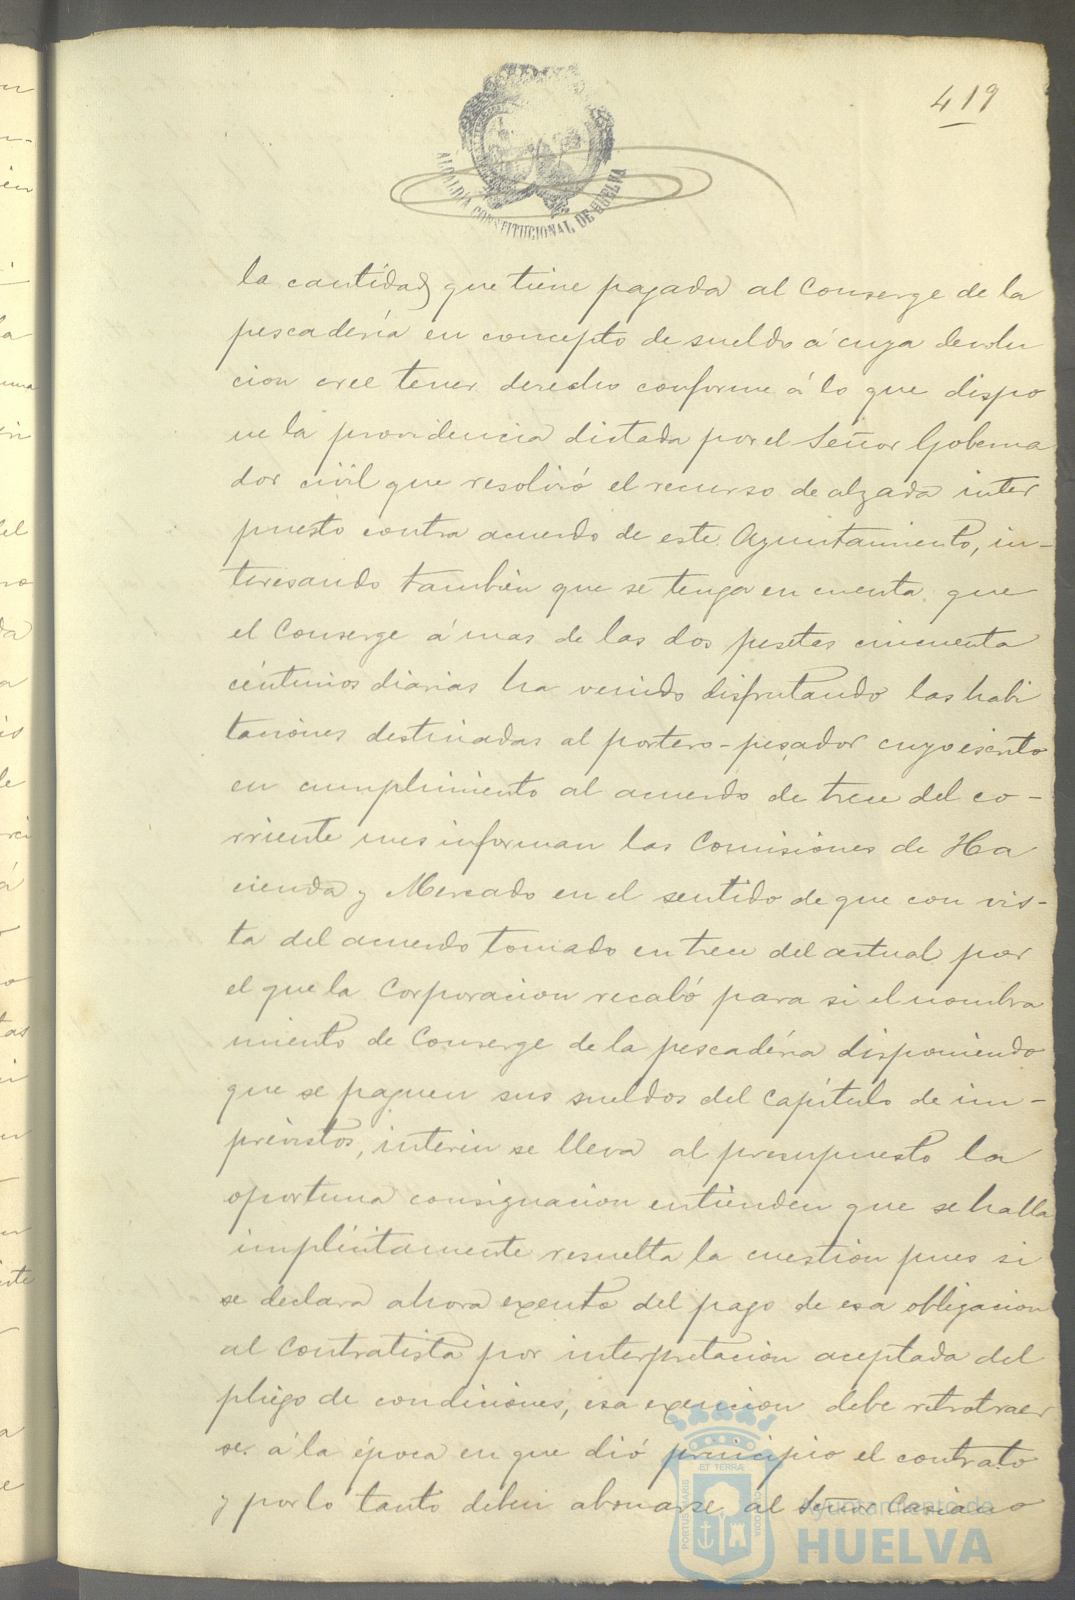 419
ALCALDÍA CONSTITUCIONAL DE HUELVA
la cantidad que tiene pagada al Conserge de la
pescadería en concepto de sueldo á cuya devolu
cion cree tener derecho conforme á lo que dispo
ne la providencia dictada por el Señor Goberna
dor civil que resolvió el recurso de alzada inter
puesto contra acuerdo de este Ayuntamiento, in-
teresando también que se tenga en cuenta que
el Conserge á mas de las dos pesetas cincuenta
céntimos diarias ha venido disfrutando las habi
taciones destinadas al portero-pesador cuyo escrito
en cumplimiento al acuerdo de trece del co-
rriente mes informan las Comisiones de Ha
cienda y Mercado en el sentido de que con vis-
ta del acuerdo tomado en trece del actual por
el que la Corporacion recabó para si el nombra
miento de Conserge de la pescadería disponiendo
que se paguen sus sueldos del Capítulo de im-
previstos, interin se lleva al presupuesto la
oportuna consignacion entienden que se halla
implícitamente resuelta la cuestión pues si
se declara ahora exento del pago de esa obligacion
al Contratista por interpretacion aceptada del
pliego de condiciones, esa exencion debe retrotraer
se á la época en que dió principio el contrato
y por lo tanto deben abonarse al Señor Casiano
PORTUS MARIS ET TERRAE CUSTODIA
Ayuntamiento de
HUELVA